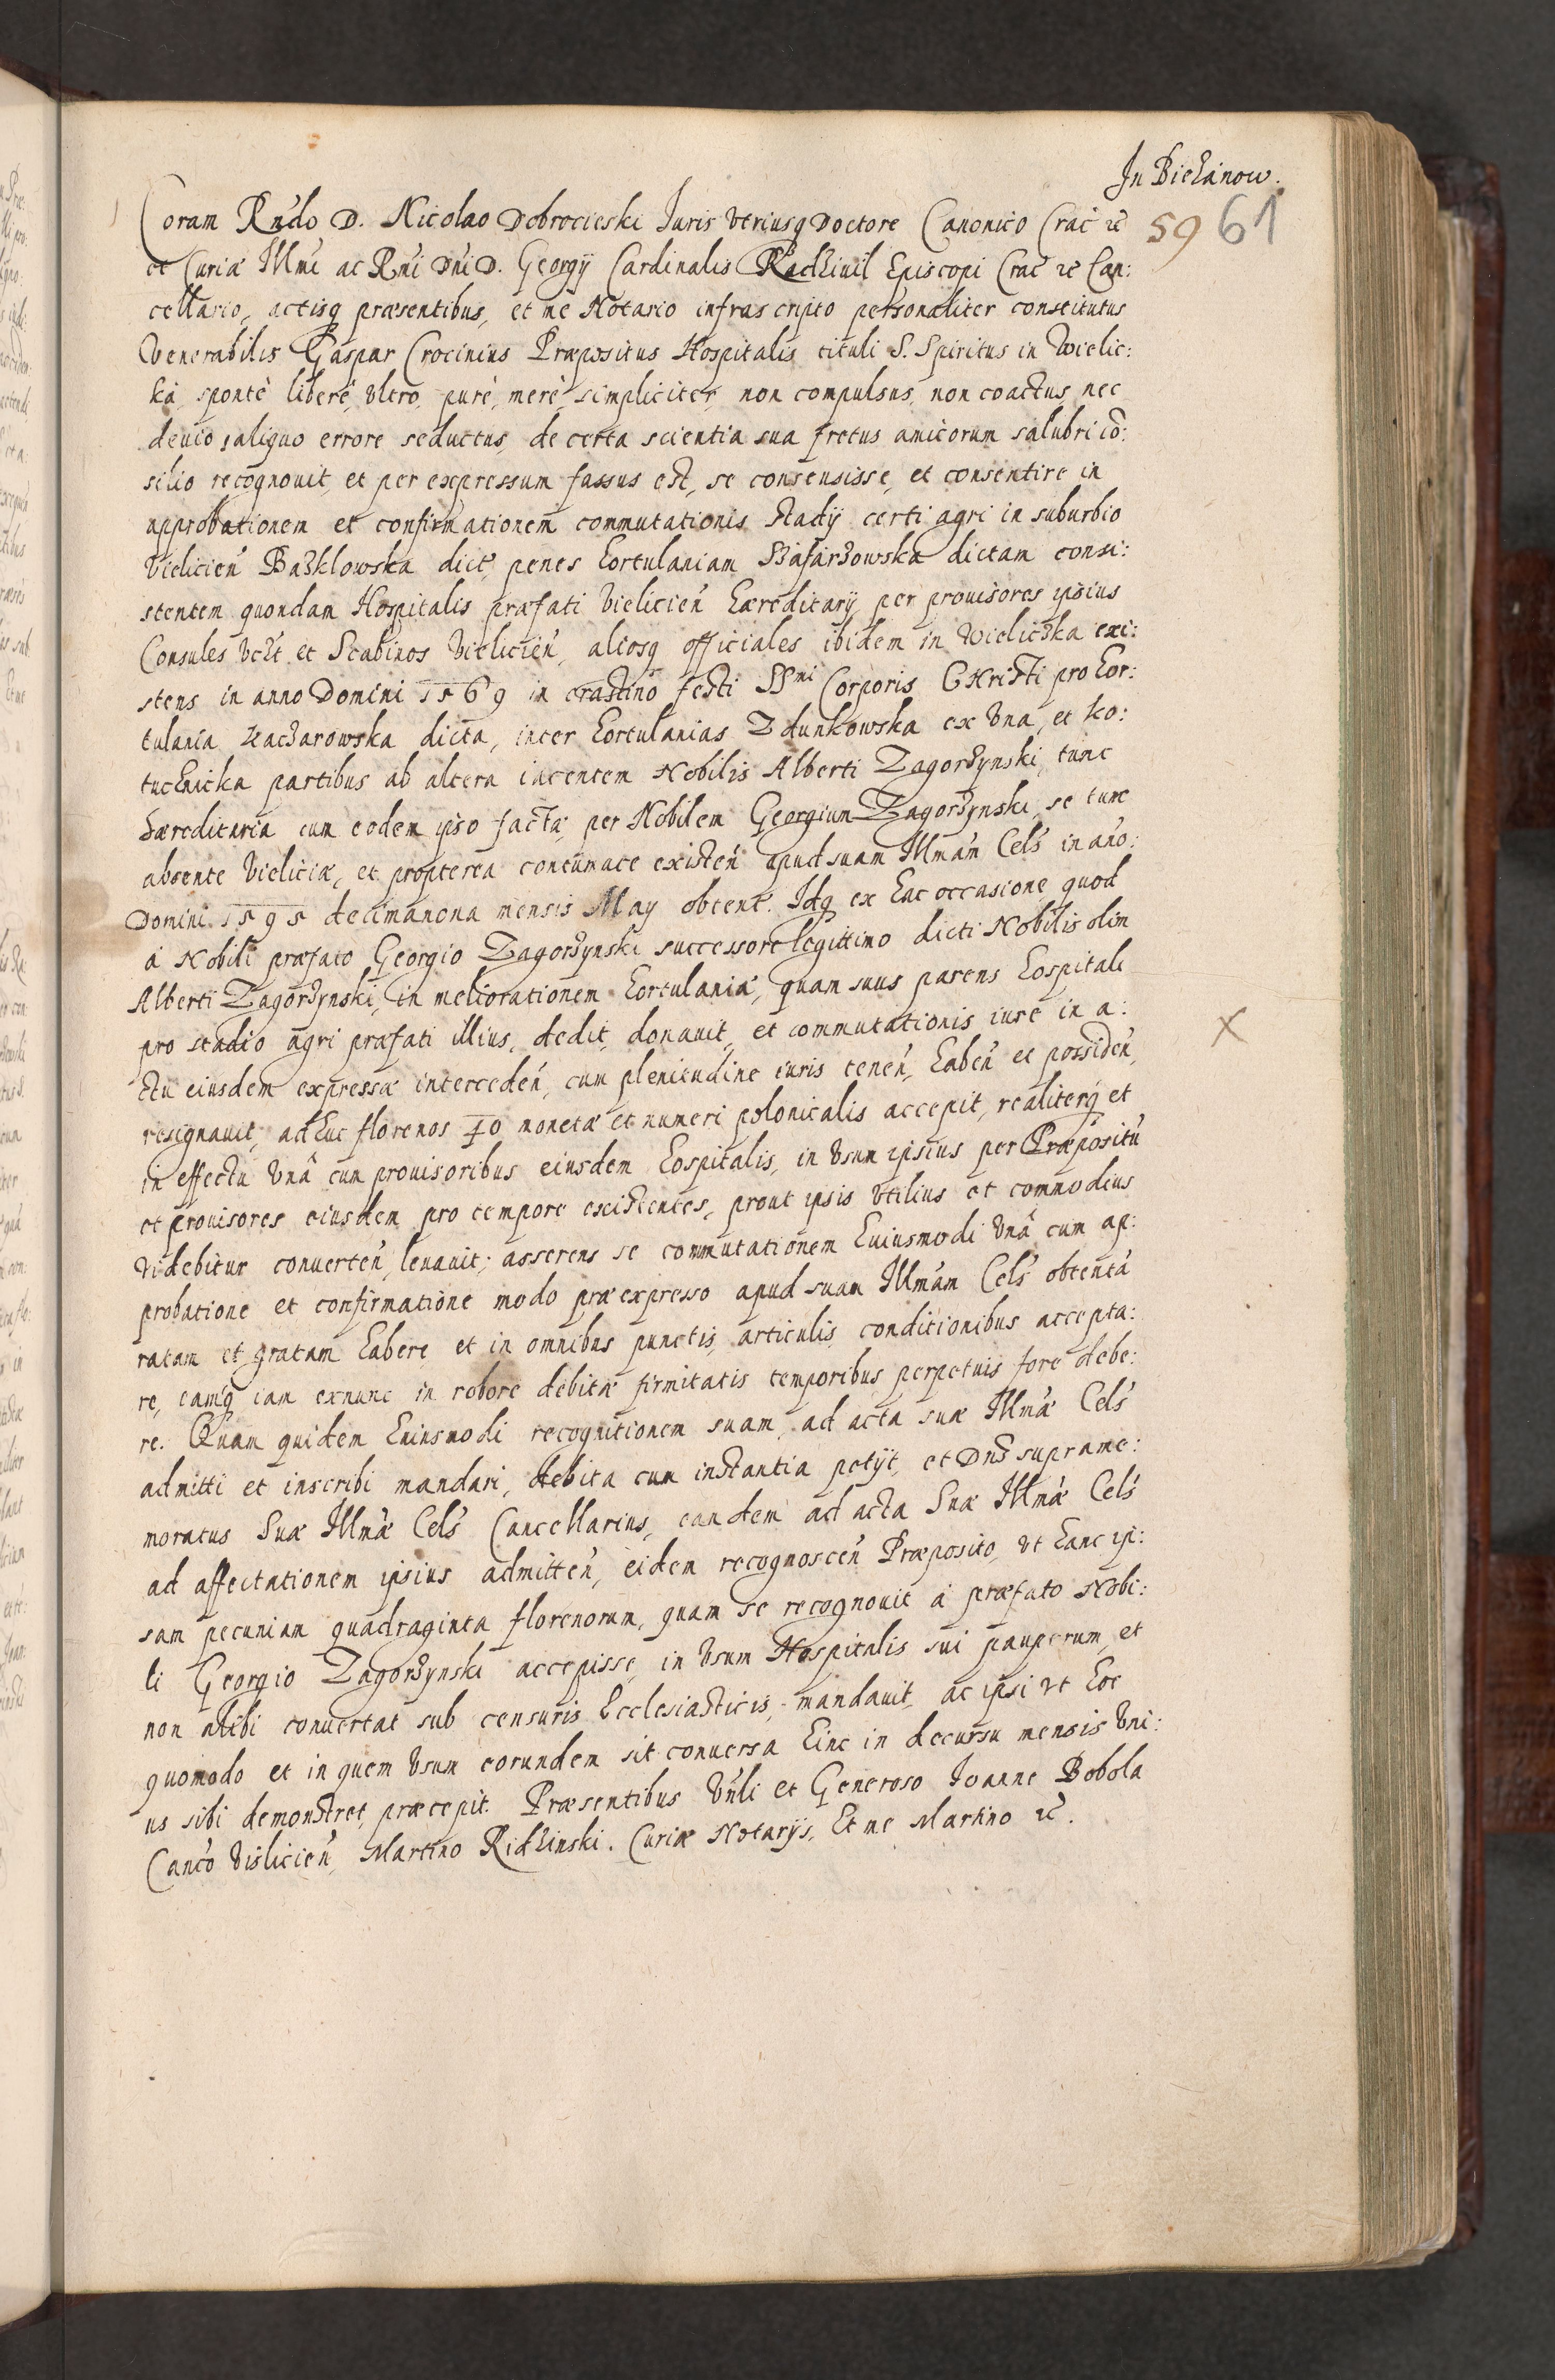 In Bieżanow.
59 61
Coram Rńdo D. Nicolao Dobrocieski Iuris Vtriusq Doctore Canonico Crac̃ ꝛc̃
et Curiæ Illmi ac Rńi Dńi D. Georgij Cardinalis Radziuil Episcopi Crac̃ ꝛc̃ Can:
cellario, actisq præsentibus, et me Notario infrascripto personaliter constitutus
Venerabilis Gaspar Crocinius Præpositus Hospitalis tituli S. Spiritus in Wielic:
ka, spontè liberè, vltro, purè, merè, simpliciter, non compulsus, non coactus, nec
deuio, aliquo errore seductus, de certa scientia sua fretus amicorum salubri cõ:
silio recognouit, et per expressum fassus est, se consensisse, et consentire in
approbationem et confirmationem commutationis stadij certi agri in suburbio
Vielicień Bażklowska dict, penes hortulaniam Szafarzowska dictam consi:
stentem quondam Hospitalis præfati Vielicień hæreditarij, per prouisores ipsius
Consules vczt et Scabinos Vielicień, aliosq officiales ibidem in Wieliczka exi:
stens in anno Domini 1569 in crastino festi SSmi Corporis CHristi pro hor:
tulania Kaczarowska dicta, inter hortulanias Zdunkowska ex Vna, et Ko:
tuchnicka partibus ab altera iacentem Nobilis Alberti Zagorzynski, tunc
hæreditaria cum eodem ipso facta, per Nobilem Georgium Zagorzynski, se tunc
absente Vieliciæ, et propterea contumace existeń apud suam Illmám Cels̃ in año:
Domini 1595 decimanona mensis May obtent. Idq ex hac occasione quod
à Nobili præfato Georgio Zagorzynski successore legittimo dicti Nobilis olim
Alberti Zagorzynski, in meliorationem hortulaniæ, quam suus parens hospitali
pro stadio agri præfati illius, dedit, donauit, et commutationis iure in a:
ctu eiusdem expressæ intercedeń, cum plenitudine iuris teneń, habeń et possideń,
resignauit, adhuc florenos 40 monetæ et numeri polonicalis accepit, realiterq et
in effectu Vnâ cum prouisoribus eiusdem hospitalis, in Vsum ipsius per Præpositũ
et prouisores eiusdem pro tempore existentes, prout ipsis vtilius et commodius
videbitur conuerteń, leuauit; asserens se commutationem huiusmodi Vnâ cum ap:
probatione et confirmatione modo præexpresso apud suam Illmám Cels̃ obtenta
ratam et gratam habere et in omnibus punctis, articulis, conditionibus accepta:
re, eamq iam exnunc in robore debitæ firmitatis temporibus perpetuis fore debe:
re. Quam quidem huiusmodi recognitionem suam, ad acta suæ Illmæ Cels̃
admitti et inscribi mandari, debita cum instantia petijt, et Dńs suprame:
moratus Suæ Illmæ Cels̃ Cancellarius, eandem ad acta Suæ Illmæ Cels̃
ad affectationem ipsius admitteń, eidem recognosceń Præposito, vt hanc ip:
sam pecuniam quadraginta florenorum, quam se recognouit à præfato Nobi:
li Georgio Zagorzynski accepisse, in Vsum Hospitalis sui pauperum, et
non alibi conuertat sub censuris Ecclesiasticis, mandauit, ac ipsi vt hoc
quomodo et in quem Vsum eorundem sit conuersa hinc in decursu mensis Vni:
us sibi demonstret, præcepit. Præsentibus Vńli et Generoso Ioanne Bobola
Cańco Vislicień, Martino Ridzinski. Curiæ Notarijs, Et me Martino ꝛc̃.
X